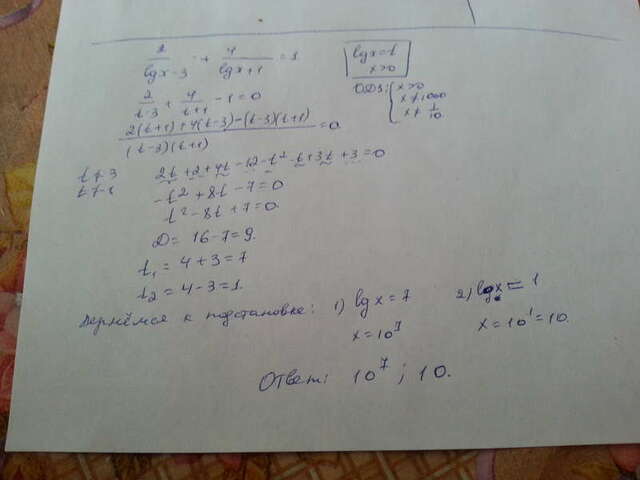 2/(lgx-3) + 4/(lgx+1) = 1
lgx=t
x>0
ОДЗ: { x>0
x≠1000
x≠1/10
2/(t-3) + 4/(t+1) - 1 = 0
(2(t+1)+4(t-3)-(t-3)(t+1))/((t-3)(t+1)) = 0
t≠3
t≠-1
2t+2+4t-12-t²-t+3t+3=0
-t²+8t-7=0
t²-8t+7=0.
D= 16-7=9.
t₁ = 4+3=7
t₂ = 4-3=1.
Вернёмся к подстановке: 1) lgx=7 2) lgx=1
x=10⁷ x=10¹=10.
Ответ: 10⁷; 10.